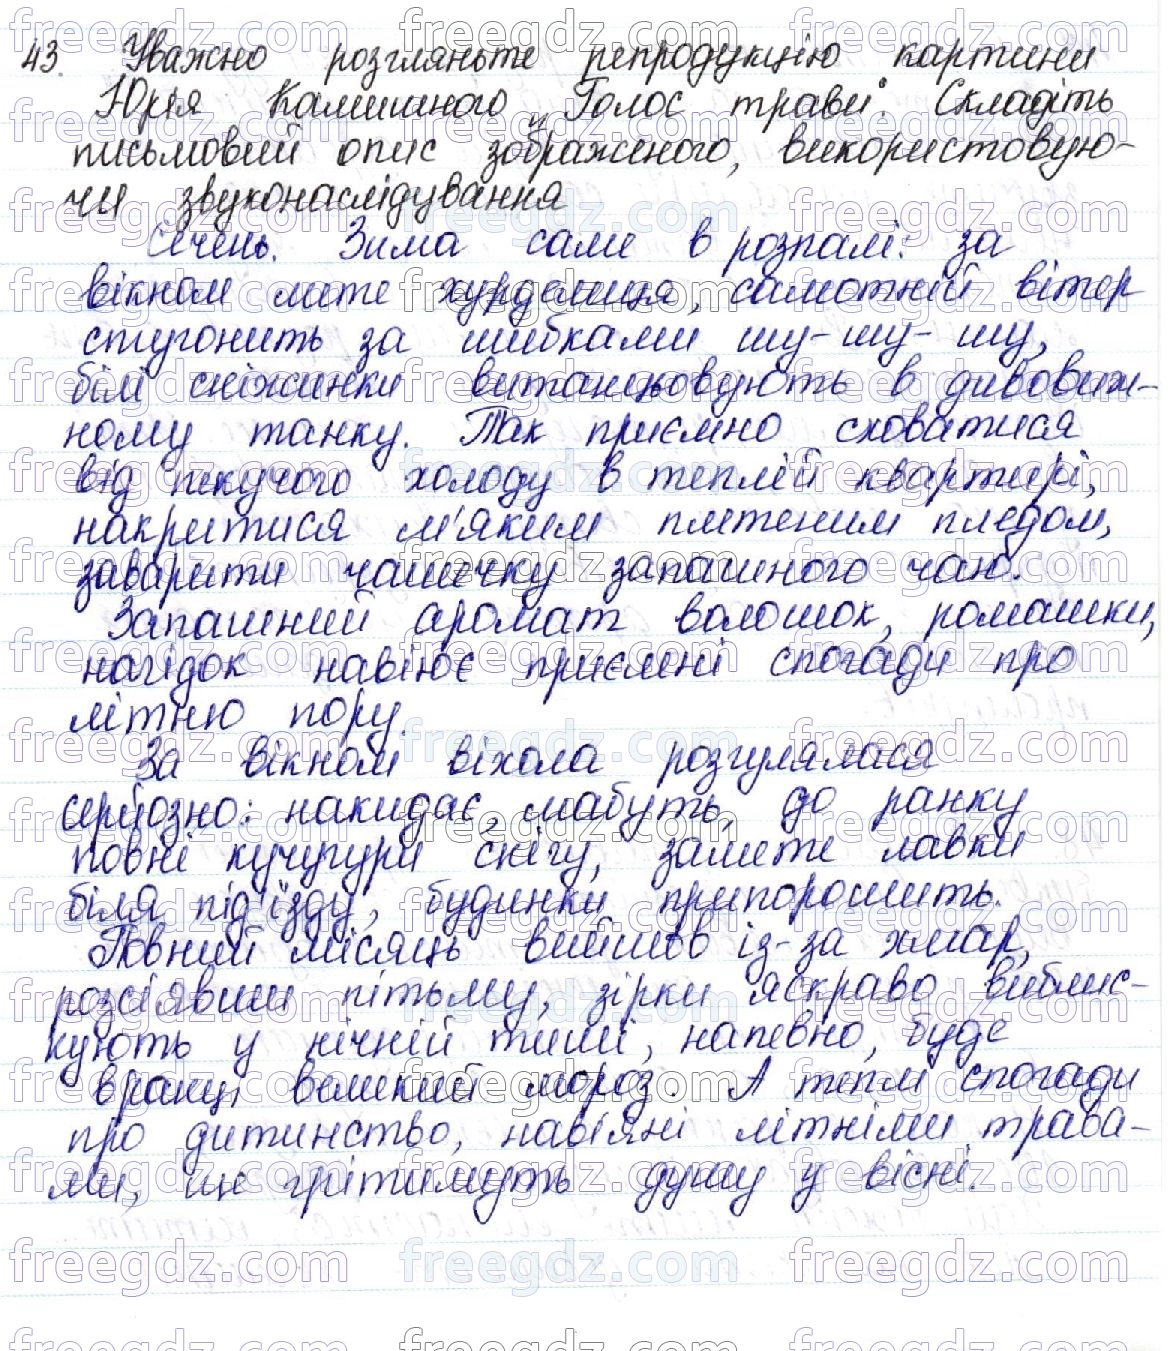 43. Уважно розгляньте репродукцію картини
Юрія Камишного „Голос трави". Складіть
письмовий опис зображеного, використовую-
чи звуконаслідування
Січень. Зима саме в розпалі: за
вікном мете хурделиця, самотній вітер
стугонить за шибками шу-шу-шу,
білі сніжинки витанцьовують в дивовиж-
ному танку. Так приємно сховатися
від пекучого холоду в теплій квартирі,
накритися м'яким плетеним пледом,
заварити чашечку запашного чаю.
Запашний аромат волошок, ромашки,
нагідок навіює приємні спогади про
літню пору.
За вікном віхола розгулялася
серйозно: накидає, мабуть, до ранку
повні кучугури снігу, замете лавки
біля під'їзду, будинки припорошить.
Повний місяць вийшов із-за хмар,
розсіявши пітьму, зірки яскраво виблис-
кують у нічній тиші, напевно, буде
вранці великий мороз. А теплі спогади
про дитинство, навіяні літніми трава-
ми, ще грітимуть душу у вісні.